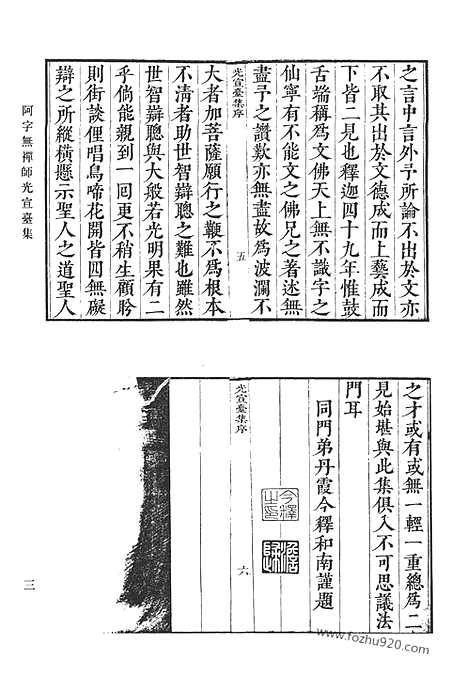 之言中言外予所論不出於文亦
不取其出於文德成而上藝成而
下皆二見也釋迦四十九年惟鼓
舌端稱為文佛天上無不識字之
仙寧有不能文之佛兄之著述無
盡予之讚歎亦無盡故為波瀾不
光宣臺集序
五
大者加菩薩願行之鞭不為根本
不清者助世智辯聰之難也雖然
世智辯聰與大般若光明果有二
乎倘能親到一回更不稍生顧盻
則街談俚唱鳥啼花開皆四無礙
辯之所縱橫懸示聖人之道聖人
阿字無禪師光宣臺集
之才或有或無一輕一重總為二
見始堪與此集俱入不可思議法
門耳
同門弟丹霞今釋和南謹題
今釋之印
光宣臺集序
六
三
www.fozhu920.com